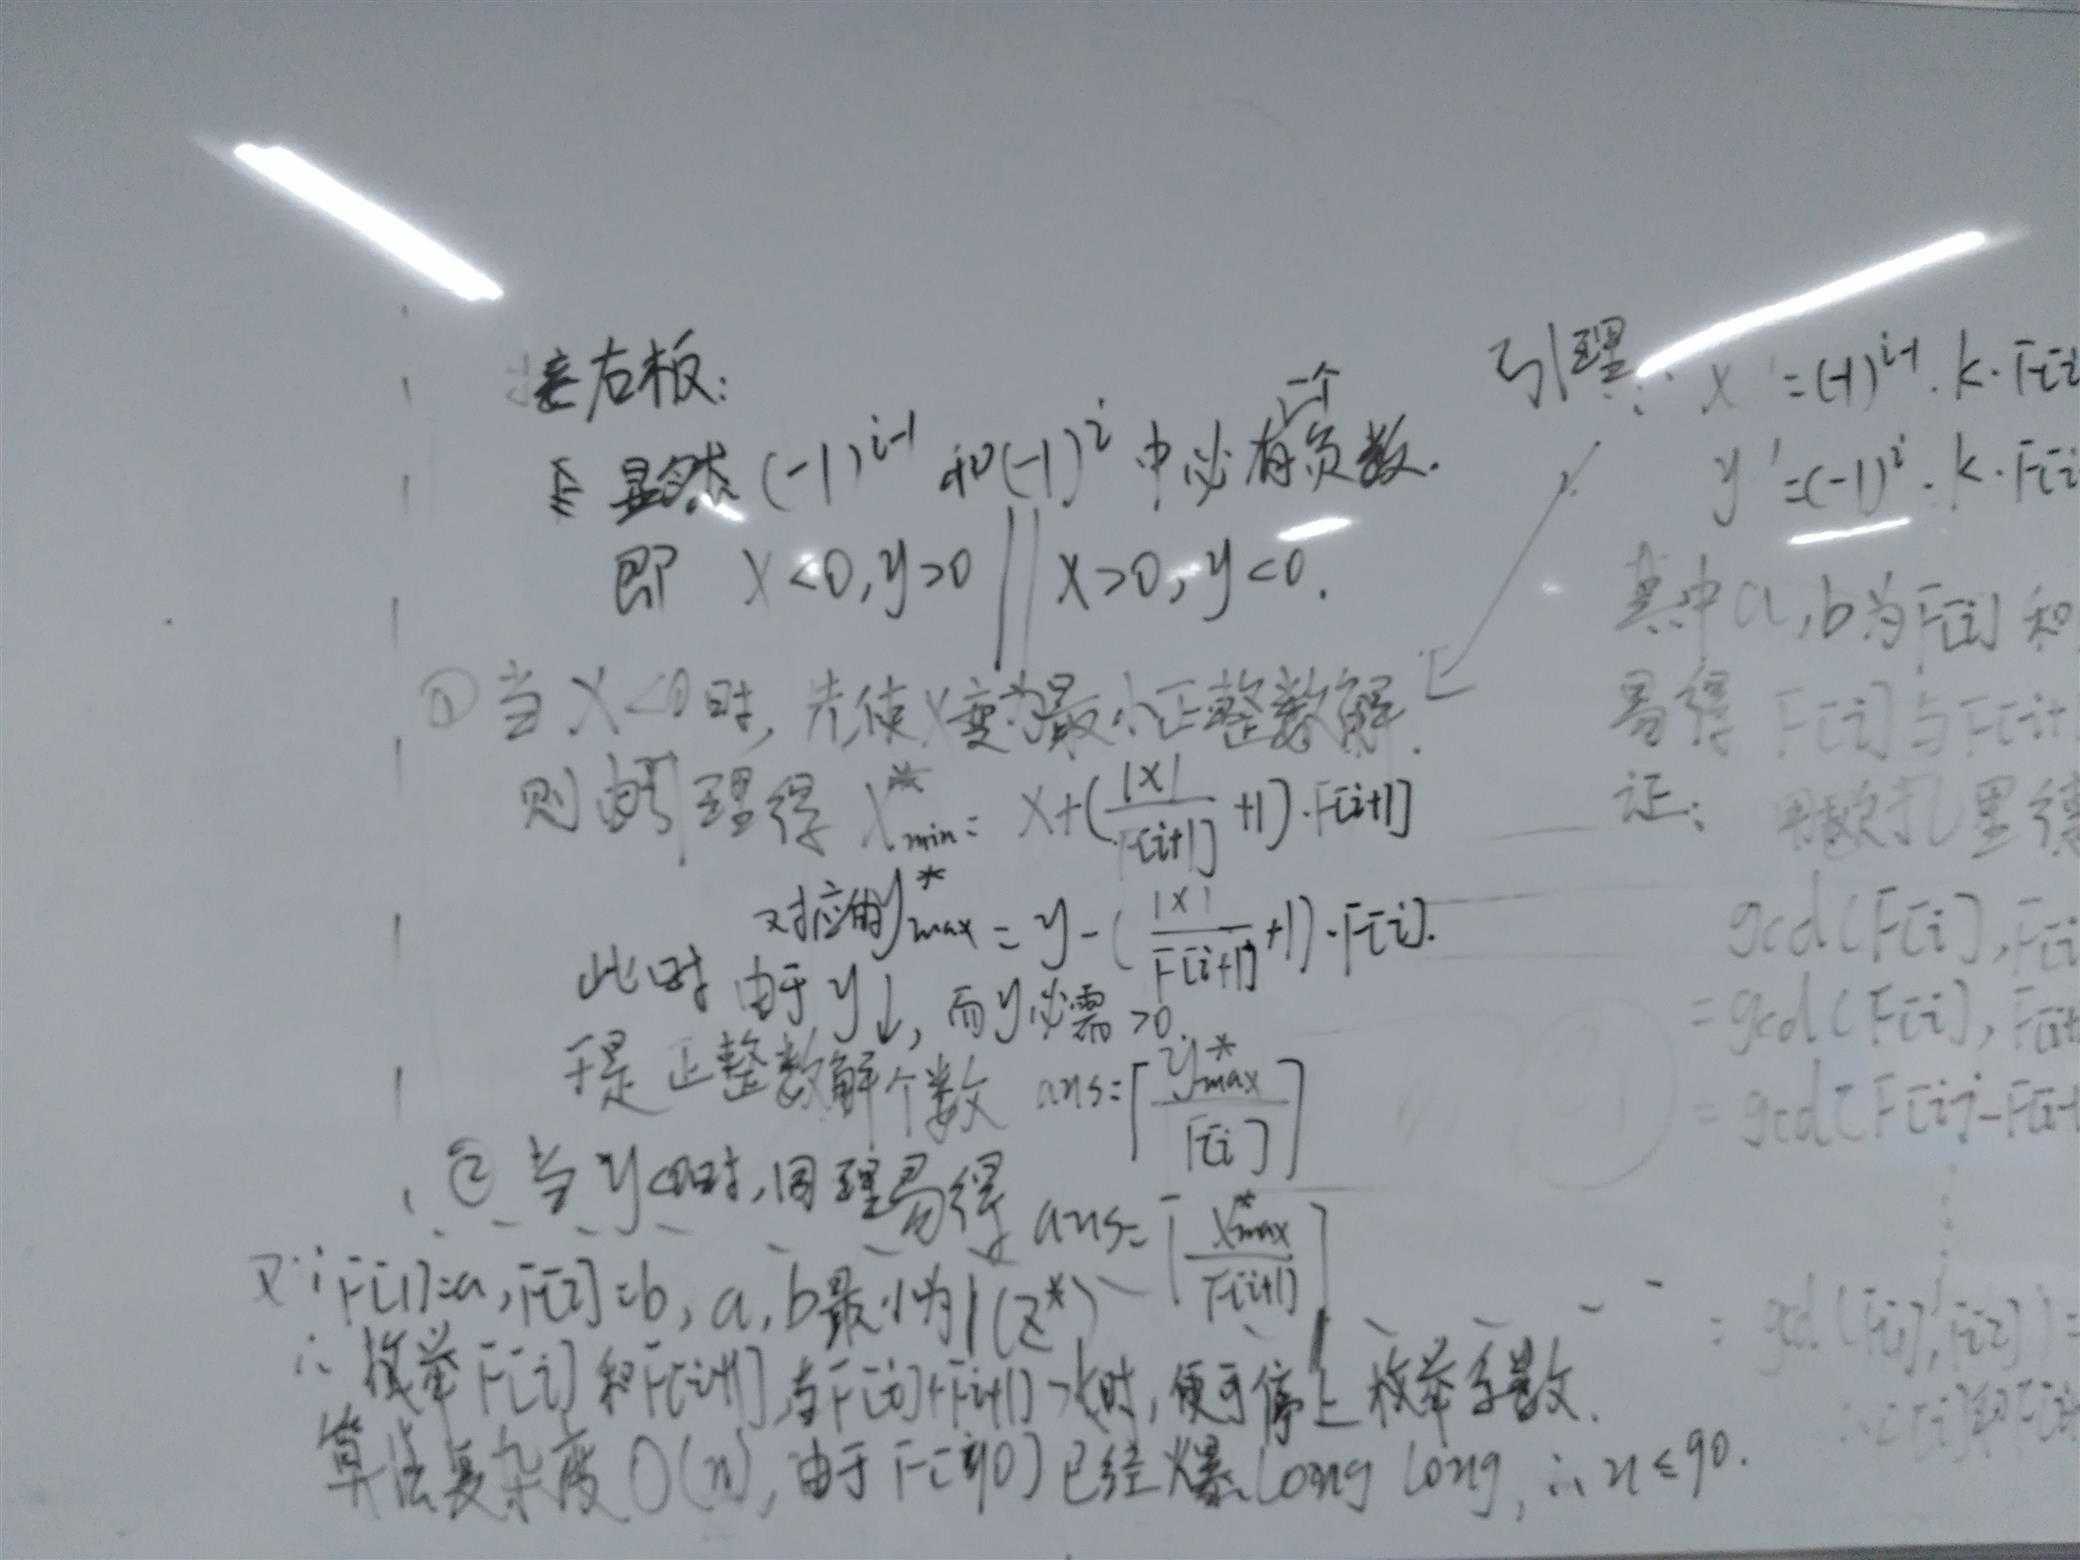 接右板:
显然 (-1)^{i-1} 和 (-1)^i 中必有一个负数.
即 x<0, y>0 || x>0, y<0.
① 当 x<0 时, 先使 x 变为最小正整数解.
则由引理得 x*min = x+(|x|/F[i+1] +1)·F[i+1]
对应的 y*max = y-(|x|/F[i+1] +1)·F[i].
此时由于 y↓, 而 y 必需 >0
于是正整数解个数 ans=⌈y*max/F[i]⌉
② 当 y<0 时, 同理易得 ans=⌈x*max/F[i+1]⌉
又∵F[1]=a, F[2]=b, a, b 最小为 1 (Z*)
∴ 枚举 F[i] 和 F[i+1], 当 F[i]+F[i+1]>k 时, 便可停止枚举系数.
算法复杂度 O(n), 由于 F[90] 已经爆 long long, ∴ n≤90.
引理: x'=(-1)^{i-1}·k·F[i
y'=(-1)^i·k·F[i
其中 a, b 为 F[i] 和
易得 F[i] 与 F[i+
证: 用欧几里得
gcd(F[i], F[i
=gcd(F[i], F[i+
=gcd(F[i]-F[i-
= gcd(F[1], F[2])=
∴F[i]和F[i